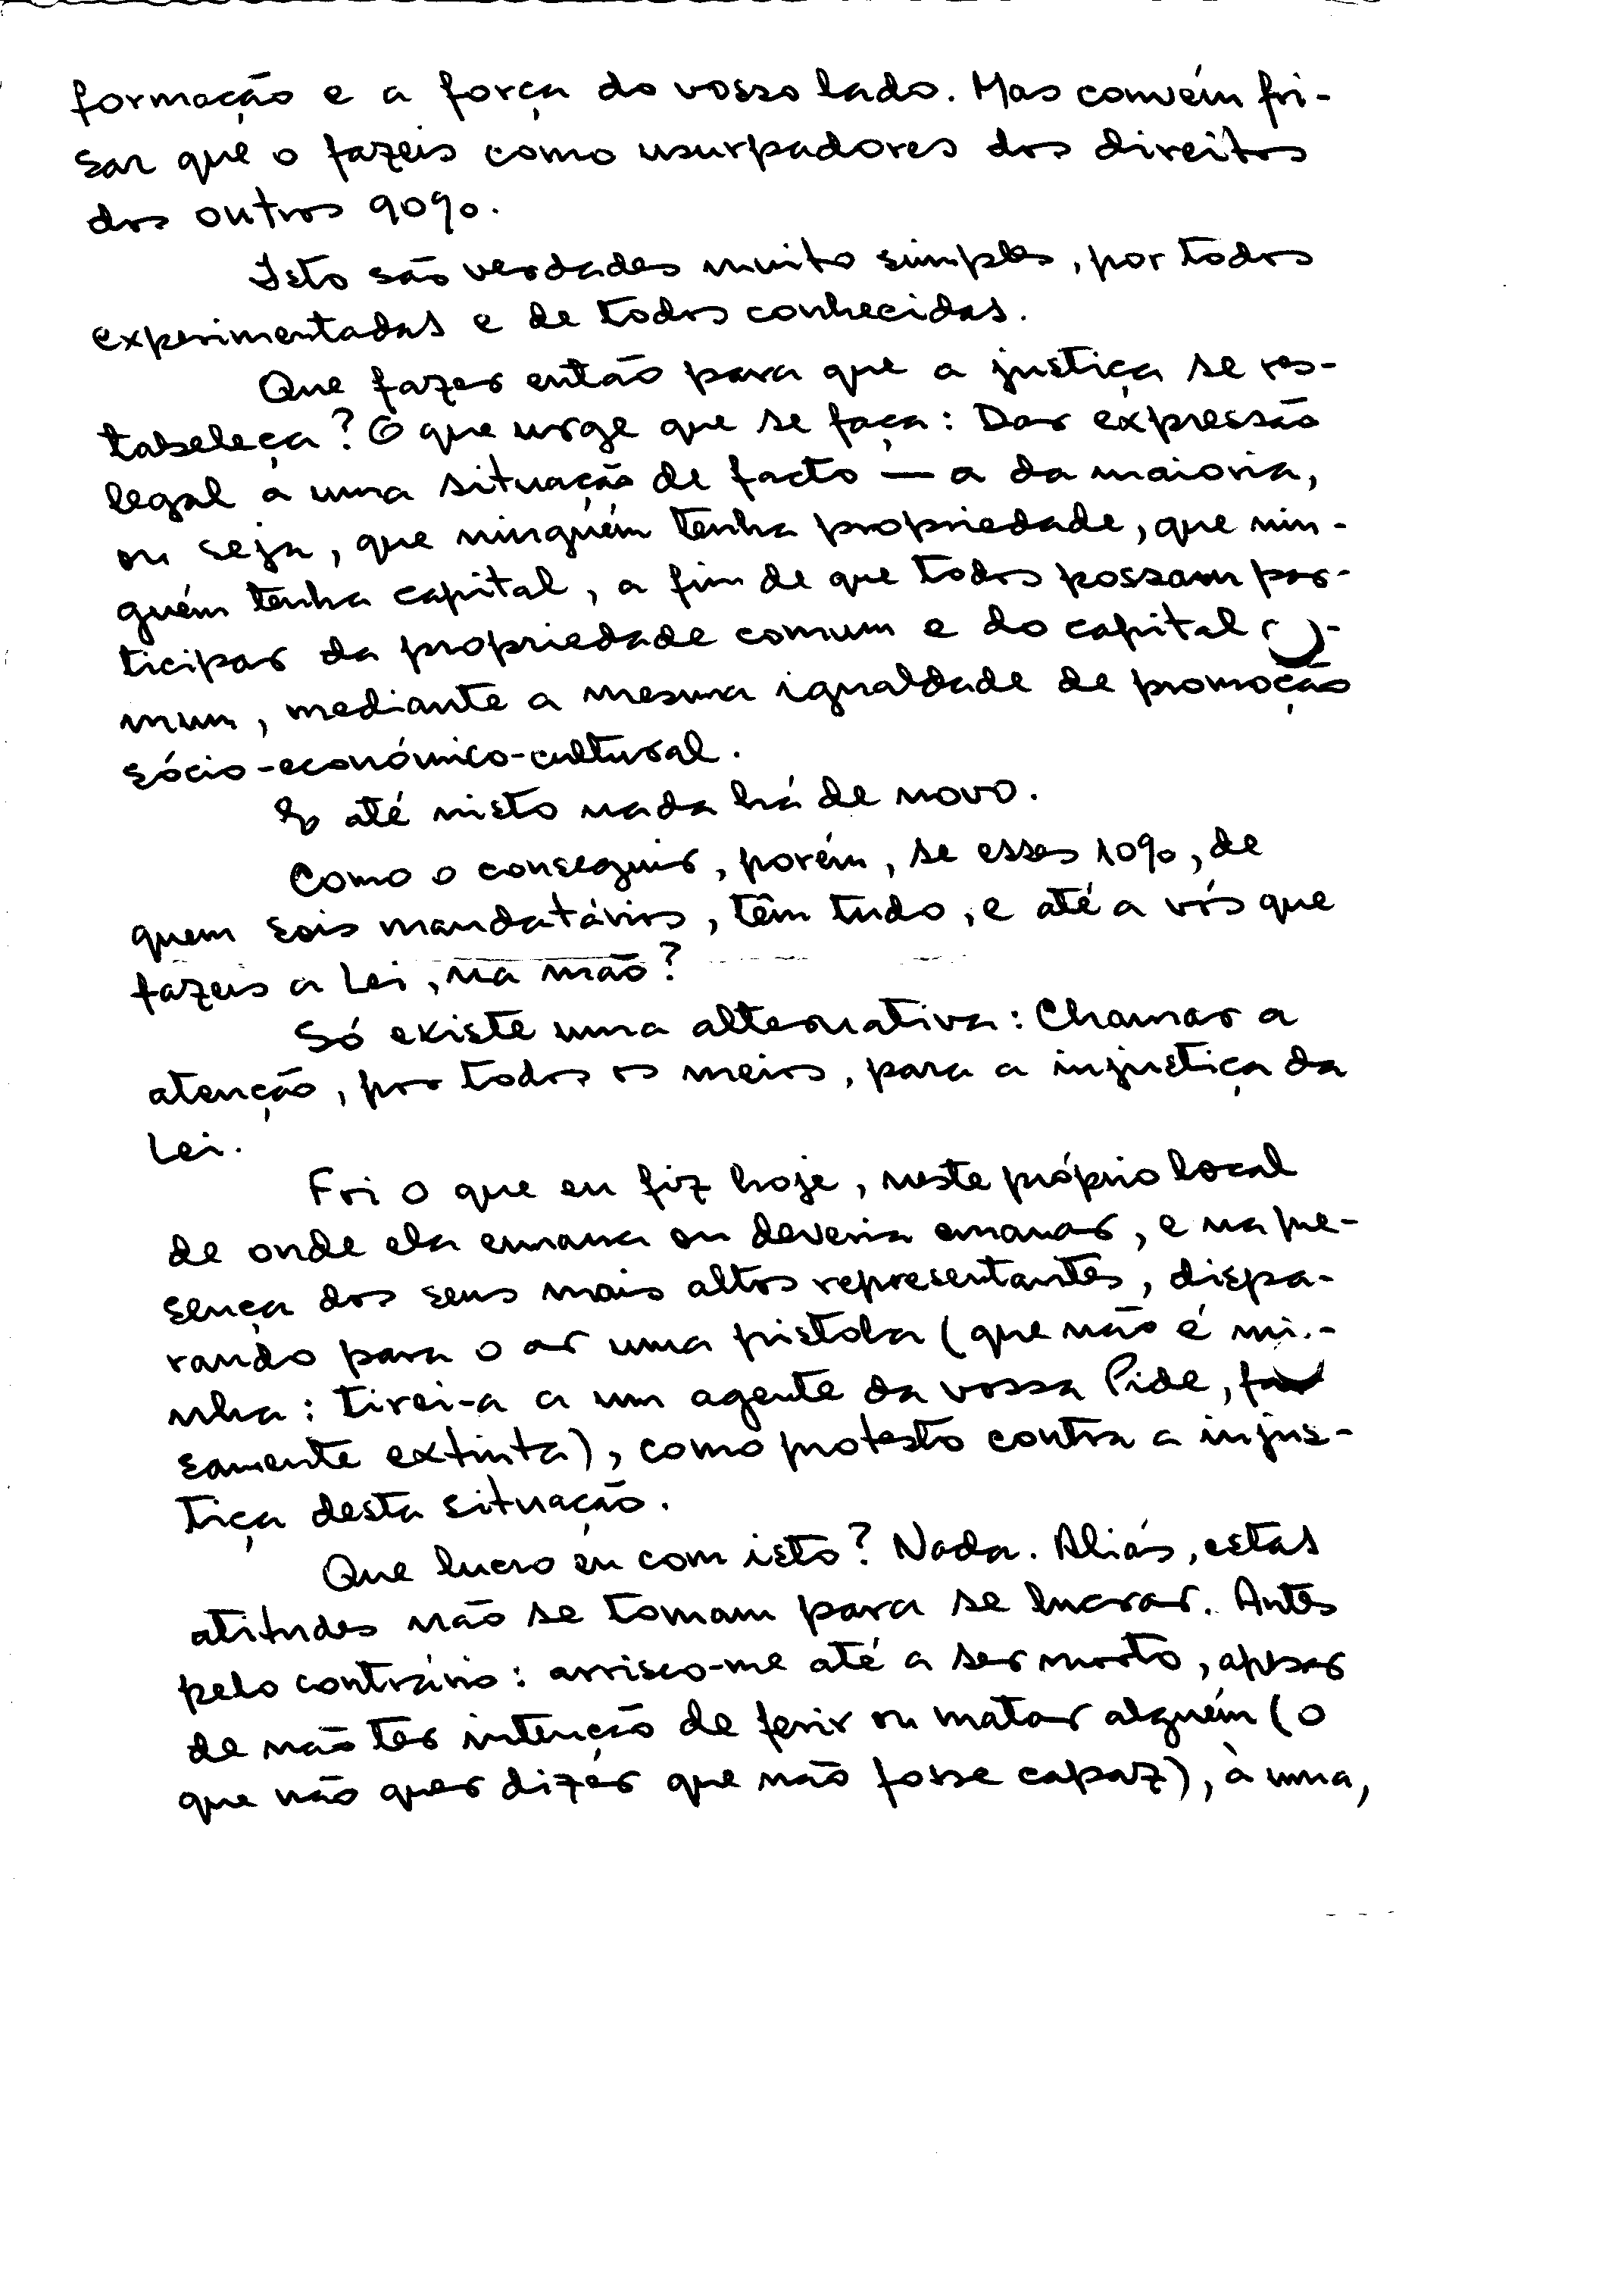 formação e a força do vosso lado. Mas convém fri-
sar que o fazeis como usurpadores dos direitos
dos outros 90%.
Isto são verdades muito simples, por todos
experimentadas e de todos conhecidas.
Que fazer então para que a justiça se res-
tabeleça? O que urge que se faça: Dar expressão
legal a uma situação de facto — a da maioria,
ou seja, que ninguém tenha propriedade, que nin-
guém tenha capital, a fim de que todos possam par-
ticipar da propriedade comum e do capital
mum, mediante a mesma igualdade de promoção
sócio-económico-cultural.
E até nisto nada há de novo.
Como o conseguir, porém, se esses 10%, de
quem sois mandatários, têm tudo, e até a vós que
fazeis a Lei, na mão?
Só existe uma alternativa: Chamar a
atenção, por todos os meios, para a injustiça da
Lei.
Foi o que eu fiz hoje, neste próprio local
de onde ela emana ou deveria emanar, e na pre-
sença dos seus mais altos representantes, dispa-
rando para o ar uma pistola (que não é mi-
nha: tirei-a a um agente da vossa Pide,
samente extinta), como protesto contra a injus-
tiça desta situação.
Que lucro eu com isto? Nada. Aliás, estas
atitudes não se tomam para se lucrar. Antes
pelo contrário: arrisco-me até a ser morto, apesar
de não ter intenção de ferir ou matar alguém (o
que não quer dizer que não fosse capaz), à uma,